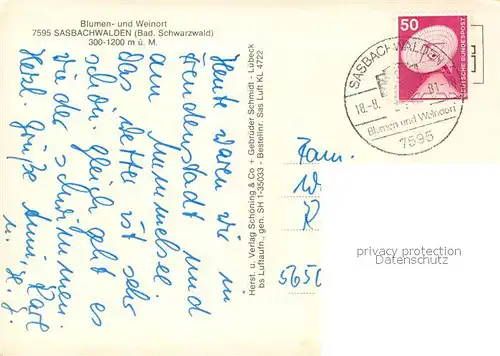 Blumen- und Weinort
7595 SASBACHWALDEN (Bad. Schwarzwald)
300-1200 m ü. M.
Heute waren wir in
Freudenstadt und
am Mummelsee.
Das Wetter ist sehr
schön. Gleich geht es
wieder schwimmen
Herzl. Grüße Anni, Karl
u.
Herst. u. Verlag Schöning & Co + Gebrüder Schmidt - Lübeck
bs Luftaufn., gen. SH 1-35033 - Bestellnr. Sas Luft KL 4722
50
DEUTSCHE BUNDESPOST
SASBACHWALDEN
18.-8.
81-
Blumen und Weinort
7595
Fam.
W
R
5650
privacy protection
Datenschutz